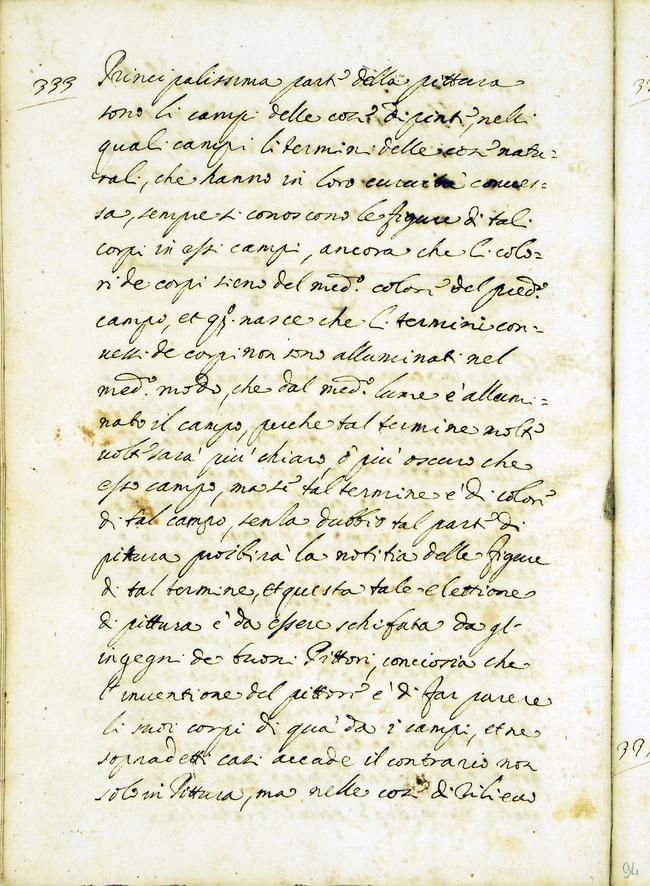 333
Principalissima parte della pittura
sono li campi delle cose dipinte, nelli
quali campi li termini delle cose natu=
rali, che hanno in loro curvità conves=
sa, sempre si conoscono le figure di tali
corpi in essi campi, ancora che li colo=
ri de corpi sieno del med.o colore del pred.o
campo, et q.o nasce che li termini con=
vessi de corpi non sono alluminati nel
med.o modo, che dal med.o lume è allumi=
nato il campo, perche tal termine molte
volte sarà più chiaro, ò più oscuro che
esso campo, ma se tal termine è di colore
di tal campo, senza dubbio tal parte di
pittura proibirà la notitia delle figure
di tal termine, et questa tale elettione
di pittura è da essere schifata da gl'
ingegni de buoni Pittori, conciosia che
l'inventione del pittore è di far parere
li suoi corpi di quà da i campi, et ne
sopradetti casi accade il contrario non
solo in Pittura, ma nelle cose di rilievo
94